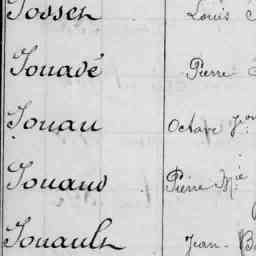 Josset Louis
Jouadé Pierre
Jouau Octave Jean
Jouaud Pierre Mie
Jouault Jean - B